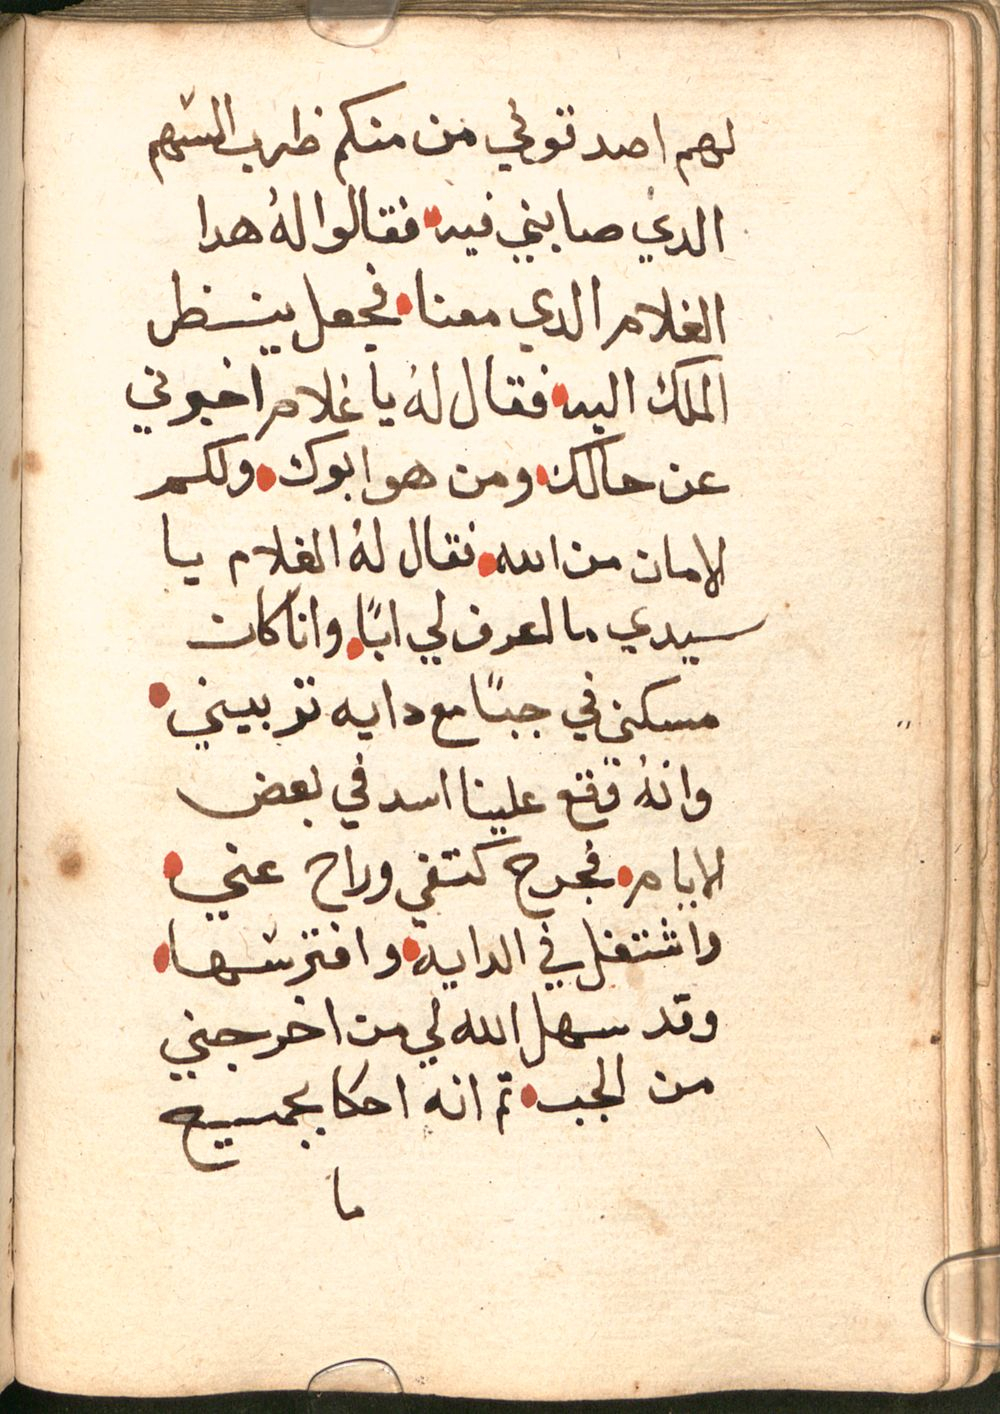 لهم اصدقوني من منكم ظرب السهم
الدي صابني فيه فقالوا لهُ هدا
الغلام الدي معنا فجعل ينظر
الملك اليه فقال لهُ يا غلام اخبرني
عن حالك ومن هو ابوك ولكم
الامان من الله فقال لهُ الغلام يا
سيدي ما اعرف لي ابًا وانا كان
مسكني في جبًا مع دايه تربيني
وانهُ وقع علينا اسد في بعض
الايام فجرح كتفي وراح عني
واشتغل في الدايه وافترسها
وقد سهل الله لي من اخرجني
من الجب تم انه احكا بجميع
ما